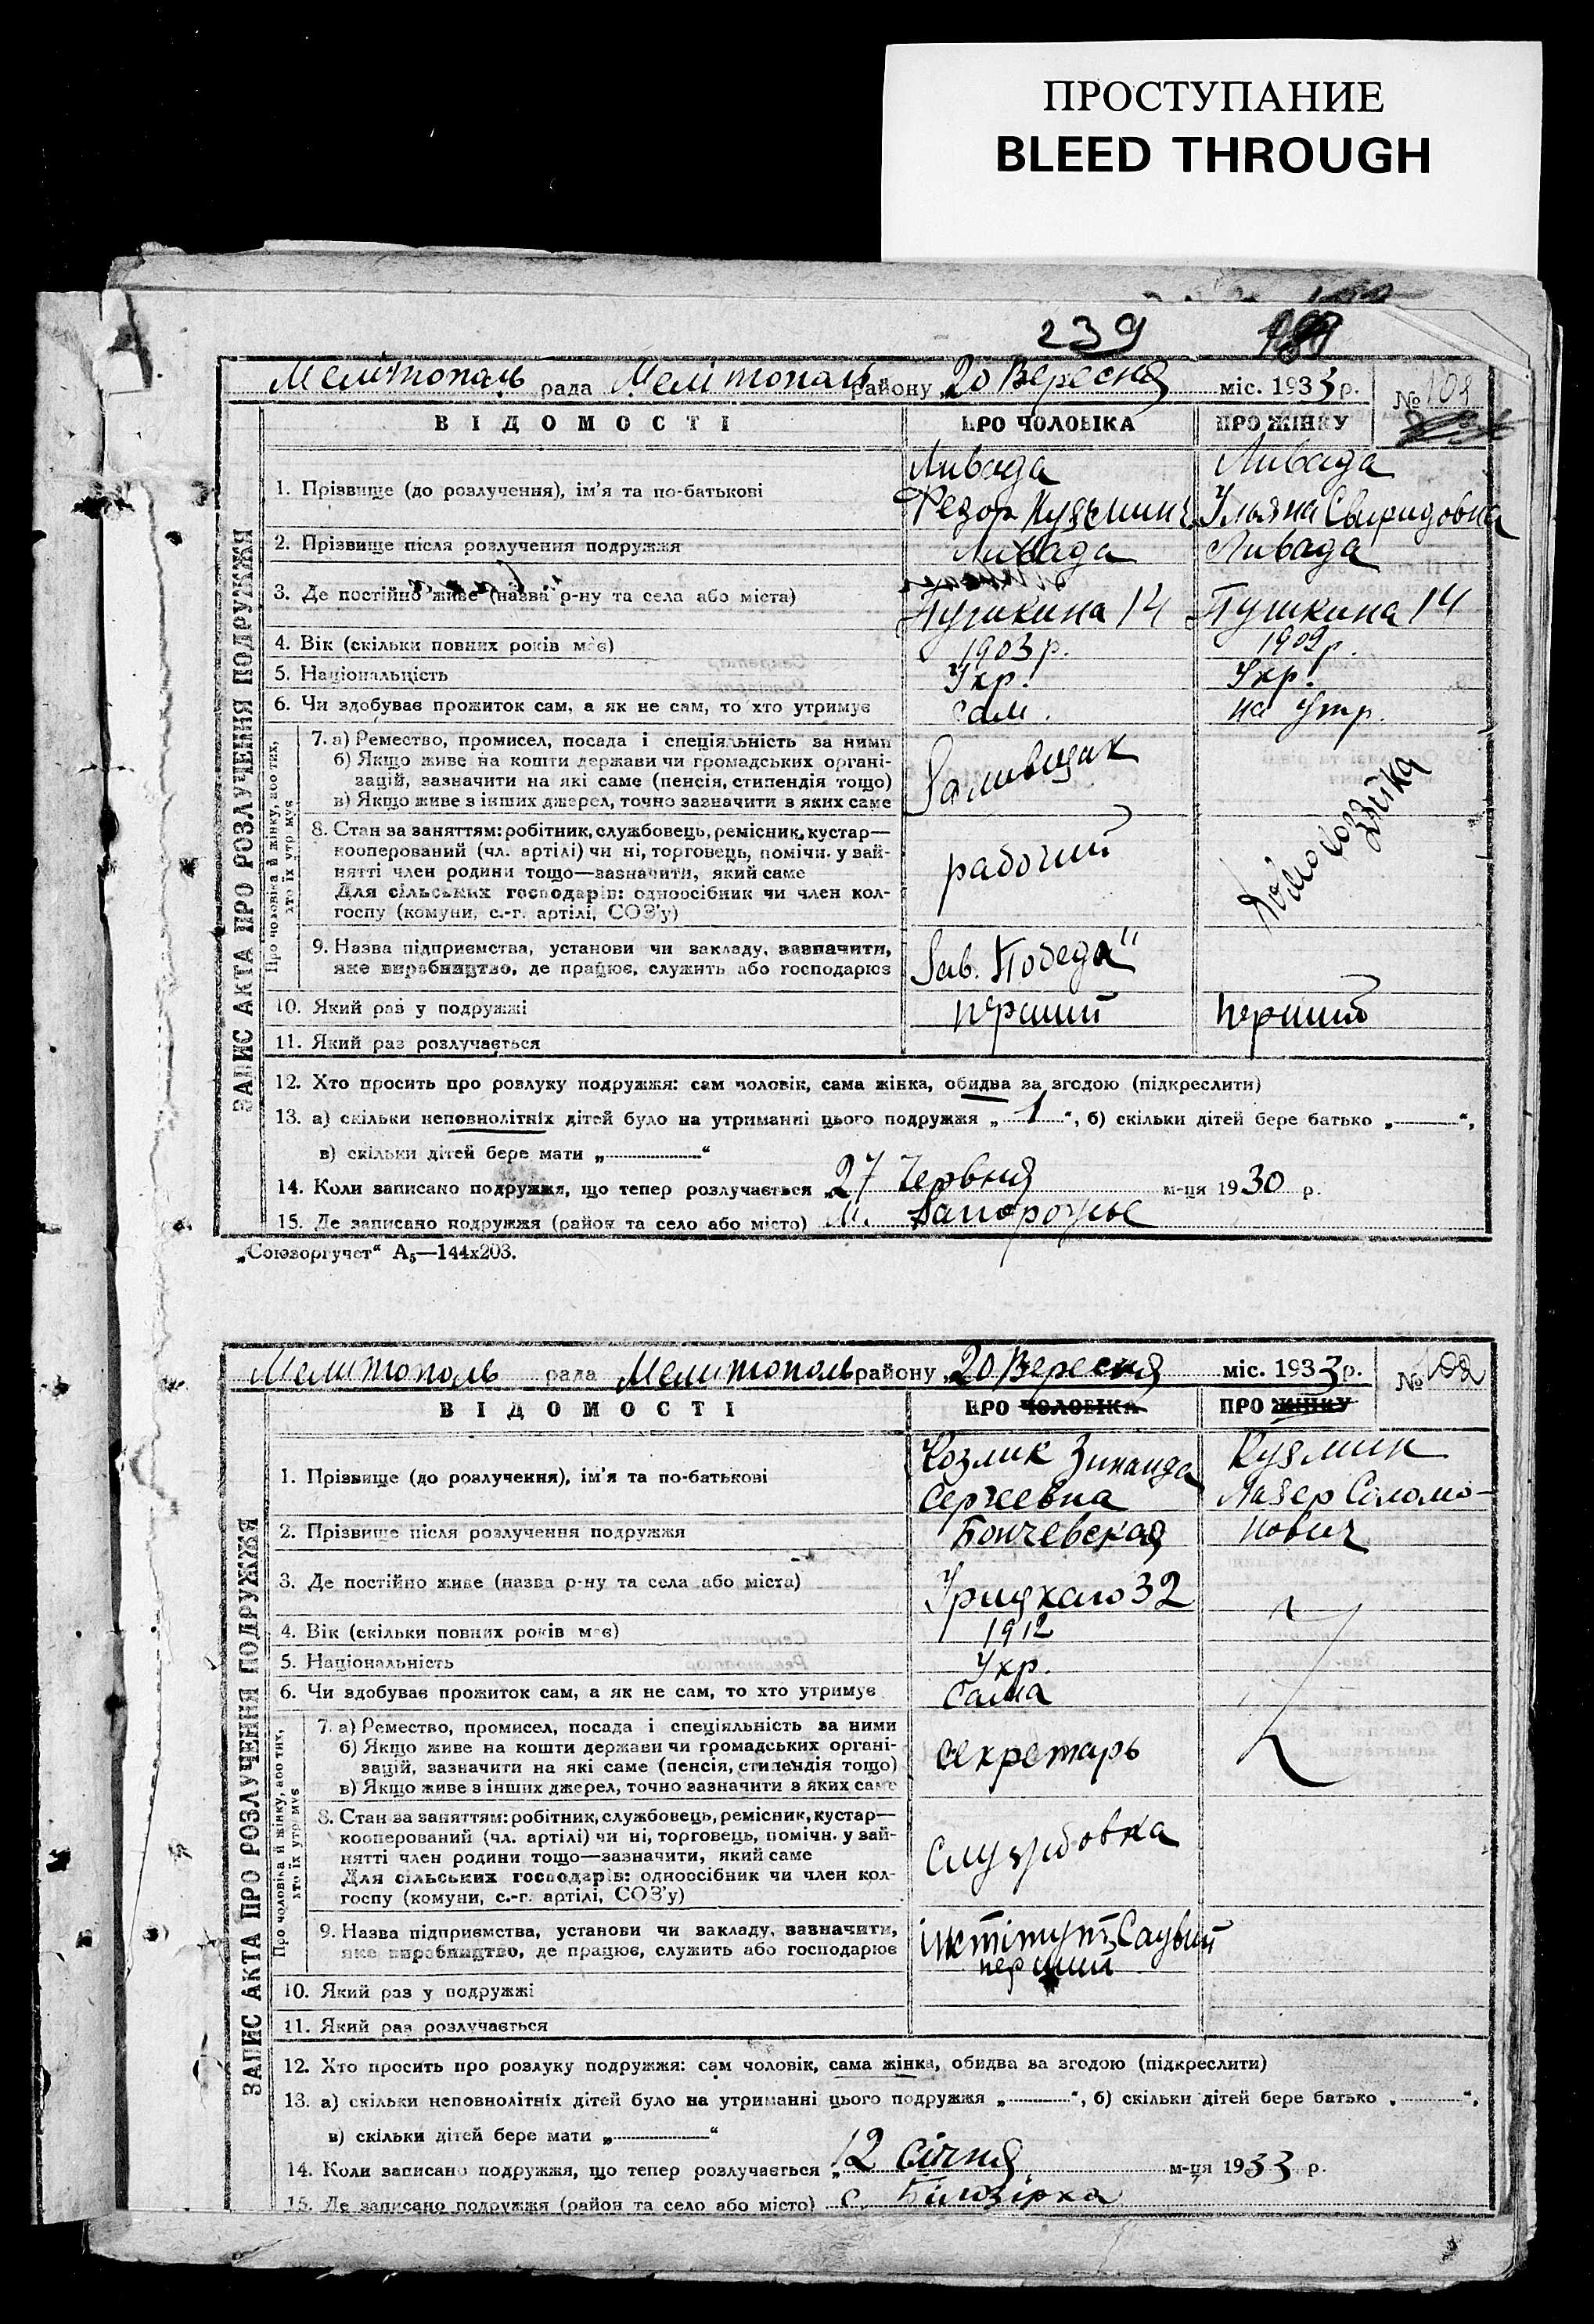 ПРОСТУПАНИЕ
BLEED THROUGH
239
Мелітополь рада Мелітополь району „20 Вересня міс. 1933 р. №
ВІДОМОСТІ ПРО ЧОЛОВІКА ПРО ЖІНКУ
ЗАПИС АКТА ПРО РОЗЛУЧЕННЯ ПОДРУЖЖЯ
Ливада Ливада
1. Прізвище (до розлучення), ім'я та по-батькові
Федор Кузьмич Ульяна Свиридовна
2. Прізвище після розлучення подружжя Ливада Ливада
3. Де постійно живе (назва р-ну та села або міста)
Пушкина 14 Пушкина 14
4. Вік (скільки повних років має) 1903 р. 1909 р.
5. Національність Укр. Укр.
6. Чи здобуває прожиток сам, а як не сам, то хто утримує сам. на утр.
Про чоловіка й жінку, або тих,
хто їх утримує
7. а) Ремество, промисел, посада і спеціяльність за ними
б) Якщо живе на кошти держави чи громадських органі-
зацій, зазначити на які саме (пенсія, стипендія тощо)
в) Якщо живе з інших джерел, точно зазначити з яких саме
Заливщик
8. Стан за заняттям: робітник, службовець, ремісник, кустар—
кооперований (чл. артілі) чи ні, торговець, помічн. у зай-
нятті член родини тощо—зазначити, який саме
Для сільських господарів: одноосібник чи член кол-
госпу (комуни, с.-г. артілі, СОЗ'у)
рабочий Домохозяйка
9. Назва підприємства, установи чи закладу, зазначити,
яке виробництво, де працює, служить або господарює
Зав. „Победа"
10. Який раз у подружжі перший перший
11. Який раз розлучається
12. Хто просить про розлуку подружжя: сам чоловік, сама жінка, обидва за згодою (підкреслити)
13. а) скільки неповнолітніх дітей було на утриманні цього подружжя „1", б) скільки дітей бере батько „ ",
в) скільки дітей бере мати „ "
14. Коли записано подружжя, що тепер розлучається „27 Червня м-ця 1930 р.
15. Де записано подружжя (район та село або місто) м. Запорожье
„Союзоргучет" А5—144х203.
Мелитополь рада Мелитополь району „20 Вересня міс. 1933 р. № 102
ВІДОМОСТІ ПРО ЧОЛОВІКА ПРО ЖІНКУ
ЗАПИС АКТА ПРО РОЗЛУЧЕННЯ ПОДРУЖЖЯ
Козлик Зинаида Кузмин
1. Прізвище (до розлучення), ім'я та по-батькові
Сергеевна Лазер Соломо-
2. Прізвище після розлучення подружжя Бончевская нович
3. Де постійно живе (назва р-ну та села або міста)
32
4. Вік (скільки повних років має) 1912
5. Національність Укр.
6. Чи здобуває прожиток сам, а як не сам, то хто утримує сама
Про чоловіка й жінку, або тих,
хто їх утримує
7. а) Ремество, промисел, посада і спеціяльність за ними
б) Якщо живе на кошти держави чи громадських органі-
зацій, зазначити на які саме (пенсія, стипендія тощо)
в) Якщо живе з інших джерел, точно зазначити з яких саме
секретарь
8. Стан за заняттям: робітник, службовець, ремісник, кустар—
кооперований (чл. артілі) чи ні, торговець, помічн. у зай-
нятті член родини тощо—зазначити, який саме
Для сільських господарів: одноосібник чи член кол-
госпу (комуни, с.-г. артілі, СОЗ'у)
службовка
9. Назва підприємства, установи чи закладу, зазначити,
яке виробництво, де працює, служить або господарює
інститут
перший
10. Який раз у подружжі
11. Який раз розлучається
12. Хто просить про розлуку подружжя: сам чоловік, сама жінка, обидва за згодою (підкреслити)
13. а) скільки неповнолітніх дітей було на утриманні цього подружжя „ ", б) скільки дітей бере батько „ ",
в) скільки дітей бере мати „ "
14. Коли записано подружжя, що тепер розлучається „12 січня м-ця 1933 р.
15. Де записано подружжя (район та село або місто) с. Білозірка